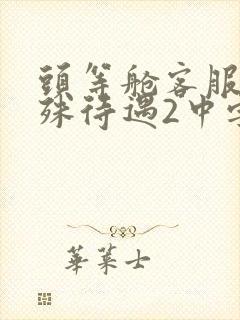 頭等舱客服
殊待遇2中字
華菜士